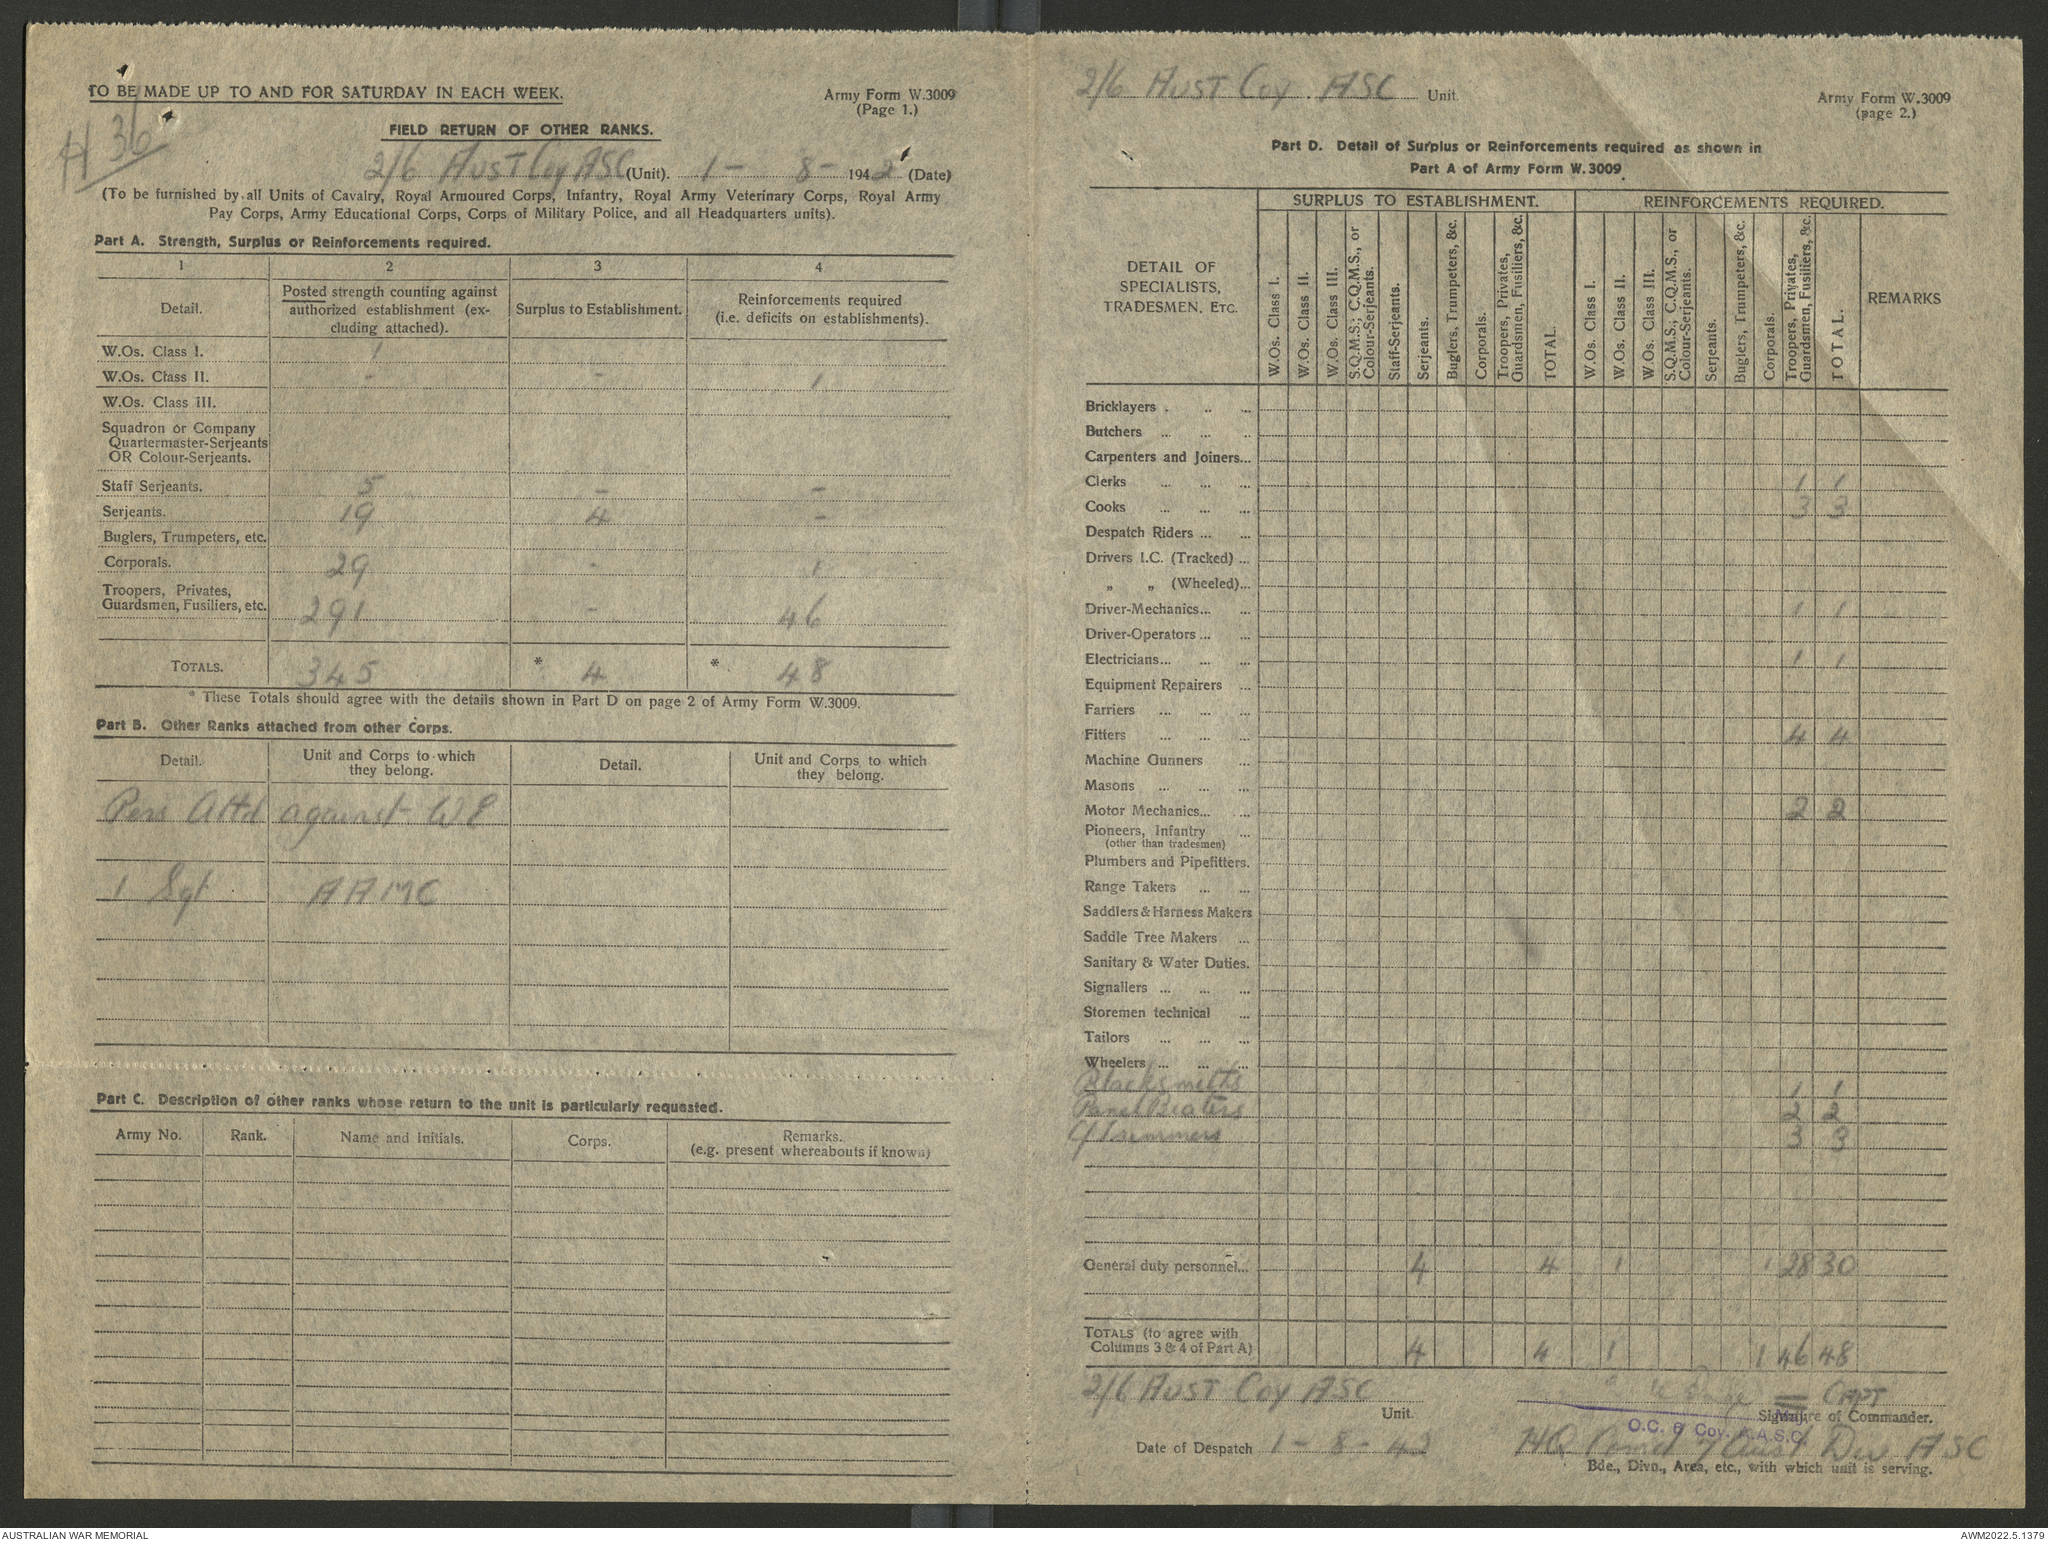 TO BE MADE UP TO AND FOR SATURDAY IN EACH WEEK.
Army Form W.3009
(Page 1.)
H 36
FIELD RETURN OF OTHER RANKS.
2/6 AUST Coy ASC (Unit). 1 - 8 - 1942 (Date)
(To be furnished by all Units of Cavalry, Royal Armoured Corps, Infantry, Royal Army Veterinary Corps, Royal Army
Pay Corps, Army Educational Corps, Corps of Military Police, and all Headquarters units).
Part A. Strength, Surplus or Reinforcements required.
1 2 3 4
Detail. Posted strength counting against authorized establishment (excluding attached). Surplus to Establishment. Reinforcements required (i.e. deficits on establishments).
W.Os. Class I. 1
W.Os. Class II. - - 1
W.Os. Class III.
Squadron or Company
Quartermaster-Serjeants
OR Colour-Serjeants.
Staff Serjeants. 5 - -
Serjeants. 19 4 -
Buglers, Trumpeters, etc.
Corporals. 29 - 1
Troopers, Privates,
Guardsmen, Fusiliers, etc. 291 - 46
TOTALS. 345 * 4 * 48
* These Totals should agree with the details shown in Part D on page 2 of Army Form W.3009.
Part B. Other Ranks attached from other Corps.
Detail. Unit and Corps to which they belong. Detail. Unit and Corps to which they belong.
Pers Attd against WE
1 Sgt AAMC
Part C. Description of other ranks whose return to the unit is particularly requested.
Army No. Rank. Name and Initials. Corps. Remarks.
(e.g. present whereabouts if known)
2/6 AUST Coy. ASC Unit.
Army Form W.3009
(page 2.)
Part D. Detail of Surplus or Reinforcements required as shown in
Part A of Army Form W.3009
DETAIL OF SPECIALISTS, TRADESMEN, ETC.
SURPLUS TO ESTABLISHMENT. REINFORCEMENTS REQUIRED.
W.Os. Class I.
W.Os. Class II.
W.Os. Class III.
S.Q.M.S.; C.Q.M.S., or Colour-Serjeants.
Staff-Serjeants.
Serjeants.
Buglers, Trumpeters, &c.
Corporals.
Troopers, Privates, Guardsmen, Fusiliers, &c.
TOTAL.
W.Os. Class I.
W.Os. Class II.
W.Os. Class III.
S.Q.M.S.; C.Q.M.S., or Colour-Serjeants.
Serjeants.
Buglers, Trumpeters, &c.
Corporals.
Troopers, Privates, Guardsmen, Fusiliers, &c.
TOTAL.
REMARKS
Bricklayers . .. ...
Butchers ... ... ..
Carpenters and Joiners...
Clerks ... ... ... 1 1
Cooks ... ... ... 3 3
Despatch Riders ... ...
Drivers I.C. (Tracked) ...
„ „ (Wheeled)...
Driver-Mechanics... ... 1 1
Driver-Operators ... ...
Electricians... ... ... 1 1
Equipment Repairers ...
Farriers ... ... ...
Fitters ... ... ... 4 4
Machine Gunners ...
Masons ... ... ...
Motor Mechanics... ... 2 2
Pioneers, Infantry ...
(other than tradesmen)
Plumbers and Pipefitters.
Range Takers ... ...
Saddlers & Harness Makers
Saddle Tree Makers ...
Sanitary & Water Duties.
Signallers ... ... ...
Storemen technical ...
Tailors ... ... ...
Wheelers ... ... ...
Blacksmiths 1 1
Panel Beaters 2 2
C/Trimmers 3 3
General duty personnel... 4 4 1 1 28 30
TOTALS (to agree with
Columns 3 & 4 of Part A) 4 4 1 1 46 48
2/6 AUST Coy ASC
Unit.
CAPT
Signature of Commander.
O.C. 6 Coy. A.A.S.C.
Date of Despatch 1 - 8 - 42
HQ Comd 7 Aust Div ASC
Bde., Divn., Area, etc., with which unit is serving.
AUSTRALIAN WAR MEMORIAL
AWM2022.5.1379